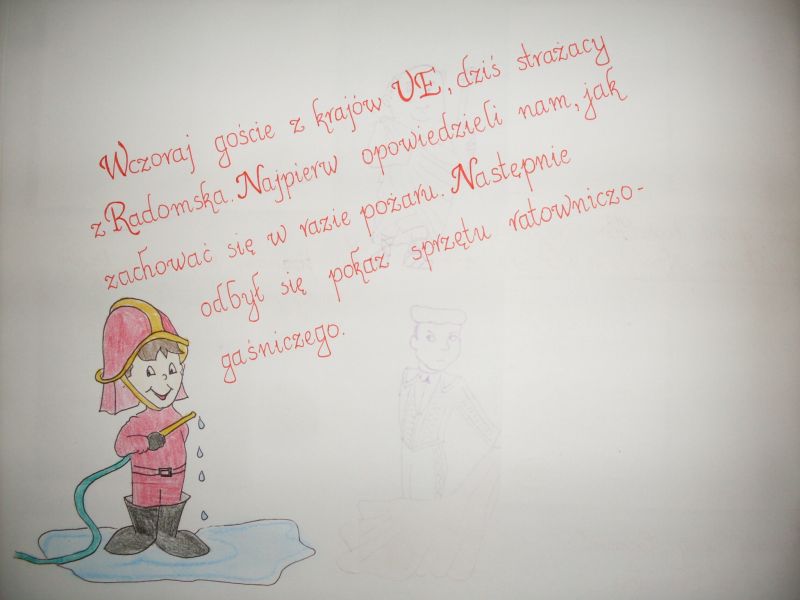 Wczoraj goście z krajów UE, dziś strażacy
z Radomska. Najpierw opowiedzieli nam, jak
zachować się w razie pożaru. Następnie
odbył się pokaz sprzętu ratowniczo-
gaśniczego.